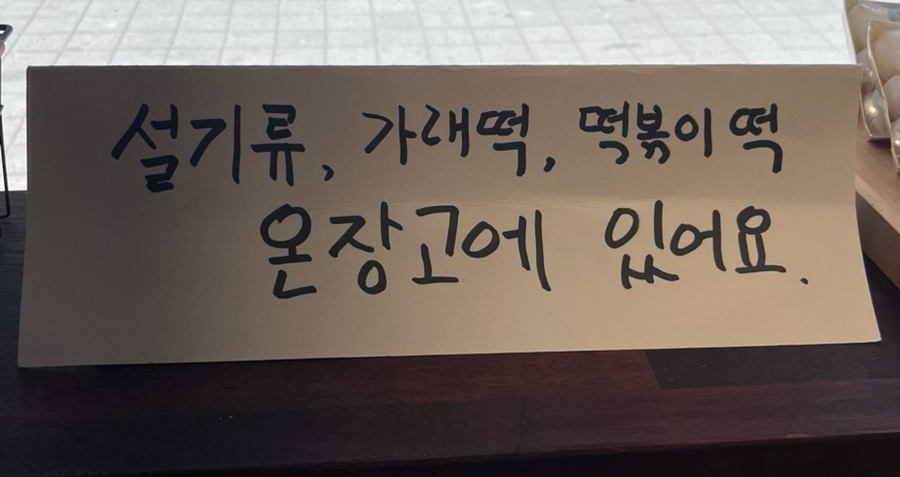 설기류, 가래떡, 떡볶이 떡
온장고에 있어요.